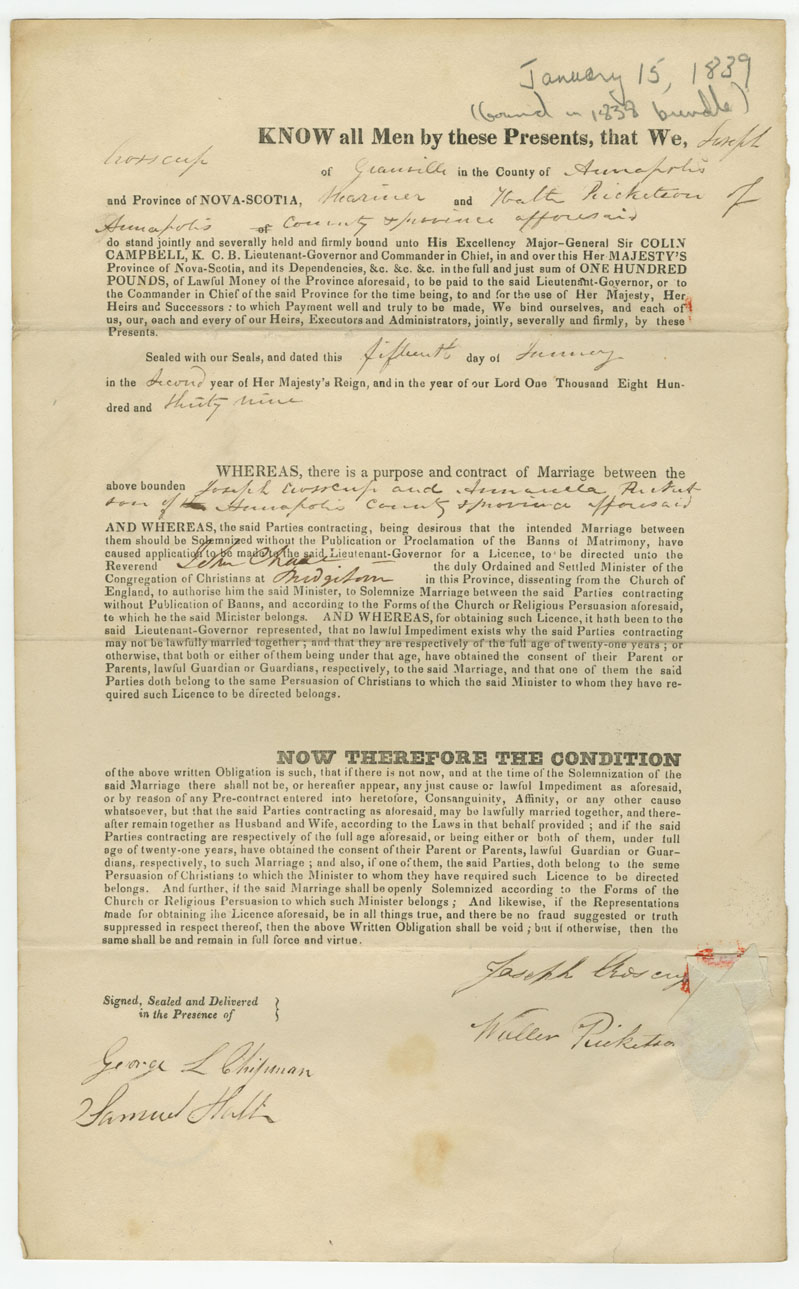 January 15, 1839
(bound in 1838 bundle)
KNOW all Men by these Presents, that We, Joseph
Crosscup of Granville in the County of Annapolis
and Province of NOVA-SCOTIA, Mariner and Ricketson of
Annapolis of County & province afforesaid
do stand jointly and severally held and firmly bound unto His Excellency Major-General Sir COLIN
CAMPBELL, K. C. B. Lieutenant-Governor and Commander in Chief, in and over this Her MAJESTY'S
Province of Nova-Scotia, and its Dependencies, &c. &c. &c. in the full and just sum of ONE HUNDRED
POUNDS, of Lawful Money of the Province aforesaid, to be paid to the said Lieutenant-Governor, or to
the Commander in Chief of the said Province for the time being, to and for the use of Her Majesty, Her
Heirs and Successors : to which Payment well and truly to be made, We bind ourselves, and each of
us, our, each and every of our Heirs, Executors and Administrators, jointly, severally and firmly, by these
Presents.
Sealed with our Seals, and dated this fifteenth day of January
in the Second year of Her Majesty's Reign, and in the year of our Lord One Thousand Eight Hun-
dred and thirty nine
WHEREAS, there is a purpose and contract of Marriage between the
above bounden Joseph Crosscup and Ricket
son of Annapolis County & province afforesaid
AND WHEREAS, the said Parties contracting, being desirous that the intended Marriage between
them should be Solemnized without the Publication or Proclamation of the Banns of Matrimony, have
caused application to be made to the said Lieutenant-Governor for a Licence, to be directed unto the
Reverend the duly Ordained and Settled Minister of the
Congregation of Christians at Bridgetown in this Province, dissenting from the Church of
England, to authorise him the said Minister, to Solemnize Marriage between the said Parties contracting
without Publication of Banns, and according to the Forms of the Church or Religious Persuasion aforesaid,
to which he the said Minister belongs. AND WHEREAS, for obtaining such Licence, it hath been to the
said Lieutenant-Governor represented, that no lawful Impediment exists why the said Parties contracting
may not be lawfully married together ; and that they are respectively of the full age of twenty-one years ; or
otherwise, that both or either of them being under that age, have obtained the consent of their Parent or
Parents, lawful Guardian or Guardians, respectively, to the said Marriage, and that one of them the said
Parties doth belong to the same Persuasion of Christians to which the said Minister to whom they have re-
quired such Licence to be directed belongs.
NOW THEREFORE THE CONDITION
of the above written Obligation is such, that if there is not now, and at the time of the Solemnization of the
said Marriage there shall not be, or hereafter appear, any just cause or lawful Impediment as aforesaid,
or by reason of any Pre-contract entered into heretofore, Consanguinity, Affinity, or any other cause
whatsoever, but that the said Parties contracting as aforesaid, may be lawfully married together, and there-
after remain together as Husband and Wife, according to the Laws in that behalf provided ; and if the said
Parties contracting are respectively of the full age aforesaid, or being either or both of them, under full
age of twenty-one years, have obtained the consent of their Parent or Parents, lawful Guardian or Guar-
dians, respectively, to such Marriage ; and also, if one of them, the said Parties, doth belong to the same
Persuasion of Christians to which the Minister to whom they have required such Licence to be directed
belongs. And further, if the said Marriage shall be openly Solemnized according to the Forms of the
Church or Religious Persuasion to which such Minister belongs ; And likewise, if the Representations
made for obtaining the Licence aforesaid, be in all things true, and there be no fraud suggested or truth
suppressed in respect thereof, then the above Written Obligation shall be void ; but if otherwise, then the
same shall be and remain in full force and virtue.
Joseph Croscup
Signed, Sealed and Delivered
in the Presence of
Ricketson
George L Chipman
Samuel